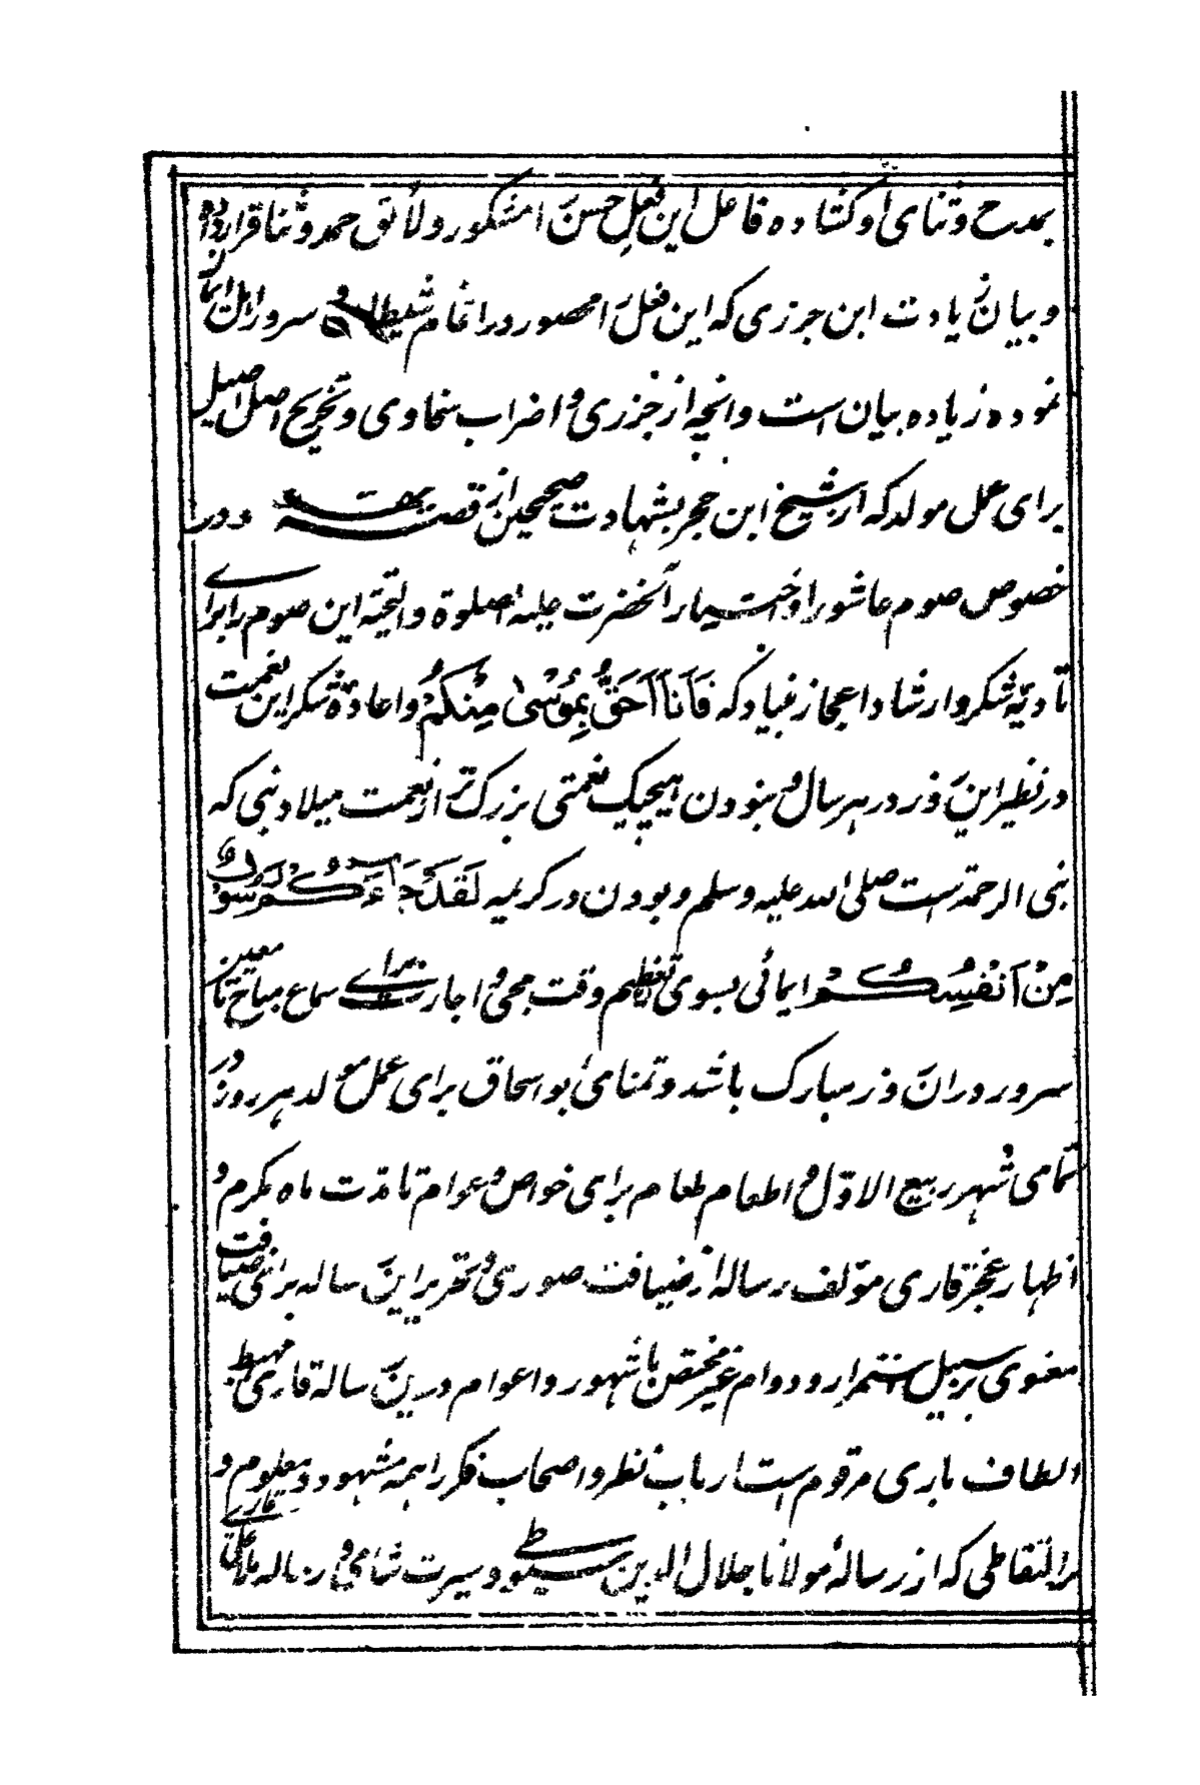 بمدح و ثنای او کشاده فاعل این فعل حسن را مشکور و لائق حمد و ثنا قرار داد
و بیان زیادت ابن جرزی که این فعل را محصور در ارغام شیطان و سرور اهل ایمان
نموده زیاده بیان است و انچه از جزری و اضراب سخاوی و تخریج اصل اصیل
برای عمل مولد که از شیخ ابن حجر بشهادت صحیحین از قصه و در
خصوص صوم عاشورا و اختیار آنحضرت علیه الصلوة والتحیة این صوم را برای
تأدیۀ شکر و ارشاد اعجاز بنیاد که فَاَنَا اَحَقُّ بِمُوْسٰی مِنْکُمْ و اعادۀ شکر این نعمت
در نظیر این روز در هر سال و نبودن هیچیک نعمتی بزرگ تر از نعمت میلاد نبی که
نبی الرحمة ست صلی الله علیه وسلم و بودن در کریمه لَقَدْ جَآءَکُمْ رَسُوْلٌ
مِنْ اَنْفُسِکُمْ ایمائی بسوی تعظیم وقت مجی و اجازت برای سماع مباح تا معین
سرور دران روز مبارک باشد و تمنای ابو اسحاق برای عمل مولد هر روز در
تمامی شهر ربیع الاوّل و اطعام طعام برای خواص و عوام تا مدّت ماه مکرم و
اظهار عجز قاری مؤلف رساله از ضیافت صوری و تحریر این رساله برای ضیافت
معنوی بر سبیل استمرار و دوام غیر مختص با شهور و اعوام درین رساله قاری مهبط
الطاف باری مرقوم است ارباب نظر و اصحاب فکر را همه مشهود و معلوم و
بر التقاطی که از رسالۀ مولانا جلال الدین سیوطی و سیرت شامی و رساله ملا علی قاری